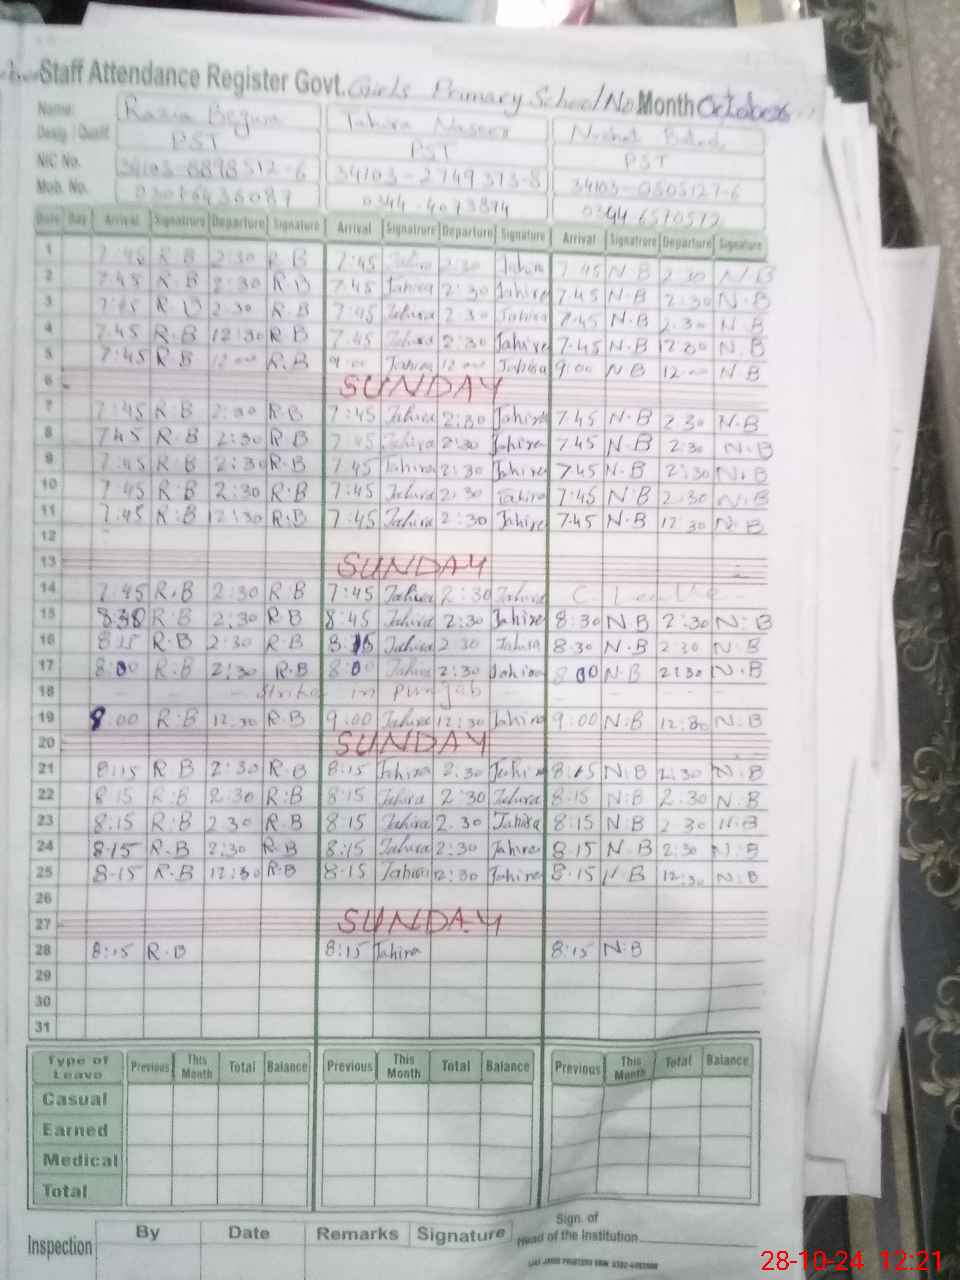 Staff Attendance Register Govt. Girls Primary School No Month October
Name: Razia Begum Tahira Naseer
Desig / Qualif PST PST PST
NIC No. 34103-8898512-6 34103-2749373-8 34103-0505127-6
Mob. No. 03076436087 0344-4073874 0344-6570572
Date Day Arrival Signature Departure Signature Arrival Signature Departure Signature Arrival Signature Departure Signature
1 7:45 R.B 2:30 R.B 7:45 Tahira 2:30 Tahira 7:45 N.B 2:30 N.B
2 7:45 R.B 2:30 R.B 7:45 Tahira 2:30 Tahira 7:45 N.B 2:30 N.B
3 7:45 R.B 2:30 R.B 7:45 Tahira 2:30 Tahira 7:45 N.B 2:30 N.B
4 7:45 R.B 12:30 R.B 7:45 Tahira 2:30 Tahira 7:45 N.B 12:30 N.B
5 7:45 R.B 12:00 R.B 9:00 Tahira 12:00 Tahira 9:00 N.B 12:00 N.B
6 SUNDAY
7 7:45 R.B 2:30 R.B 7:45 Tahira 2:30 Tahira 7:45 N.B 2:30 N.B
8 7:45 R.B 2:30 R.B 7:45 Tahira 2:30 Tahira 7:45 N.B 2:30 N.B
9 7:45 R.B 2:30 R.B 7:45 Tahira 2:30 Tahira 7:45 N.B 2:30 N.B
10 7:45 R.B 2:30 R.B 7:45 Tahira 2:30 Tahira 7:45 N.B 2:30 N.B
11 7:45 R.B 12:30 R.B 7:45 Tahira 2:30 Tahira 7:45 N.B 12:30 N.B
12
13 SUNDAY
14 7:45 R.B 2:30 R.B 7:45 Tahira 2:30 Tahira C. Leave
15 8:30 R.B 2:30 R.B 8:45 Tahira 2:30 Tahira 8:30 N.B 2:30 N.B
16 8:15 R.B 2:30 R.B 8:15 Tahira 2:30 Tahira 8:30 N.B 2:30 N.B
17 8:00 R.B 2:30 R.B 8:00 Tahira 2:30 Tahira 8:00 N.B 2:30 N.B
18 Strike in Punjab
19 8:00 R.B 12:30 R.B 9:00 Tahira 12:30 Tahira 9:00 N.B 12:30 N.B
20 SUNDAY
21 8:15 R.B 2:30 R.B 8:15 Tahira 2:30 Tahira 8:15 N.B 2:30 N.B
22 8:15 R.B 2:30 R.B 8:15 Tahira 2:30 Tahira 8:15 N.B 2:30 N.B
23 8:15 R.B 2:30 R.B 8:15 Tahira 2:30 Tahira 8:15 N.B 2:30 N.B
24 8:15 R.B 2:30 R.B 8:15 Tahira 2:30 Tahira 8:15 N.B 2:30 N.B
25 8:15 R.B 12:30 R.B 8:15 Tahira 12:30 Tahira 8:15 N.B 12:30 N.B
26
27 SUNDAY
28 8:15 R.B 8:15 Tahira 8:15 N.B
29
30
31
Type of Leave Previous This Month Total Balance Previous This Month Total Balance Previous This Month Total Balance
Casual
Earned
Medical
Total
Inspection By Date Remarks Signature Sign. of Head of the Institution
28-10-24 12:21